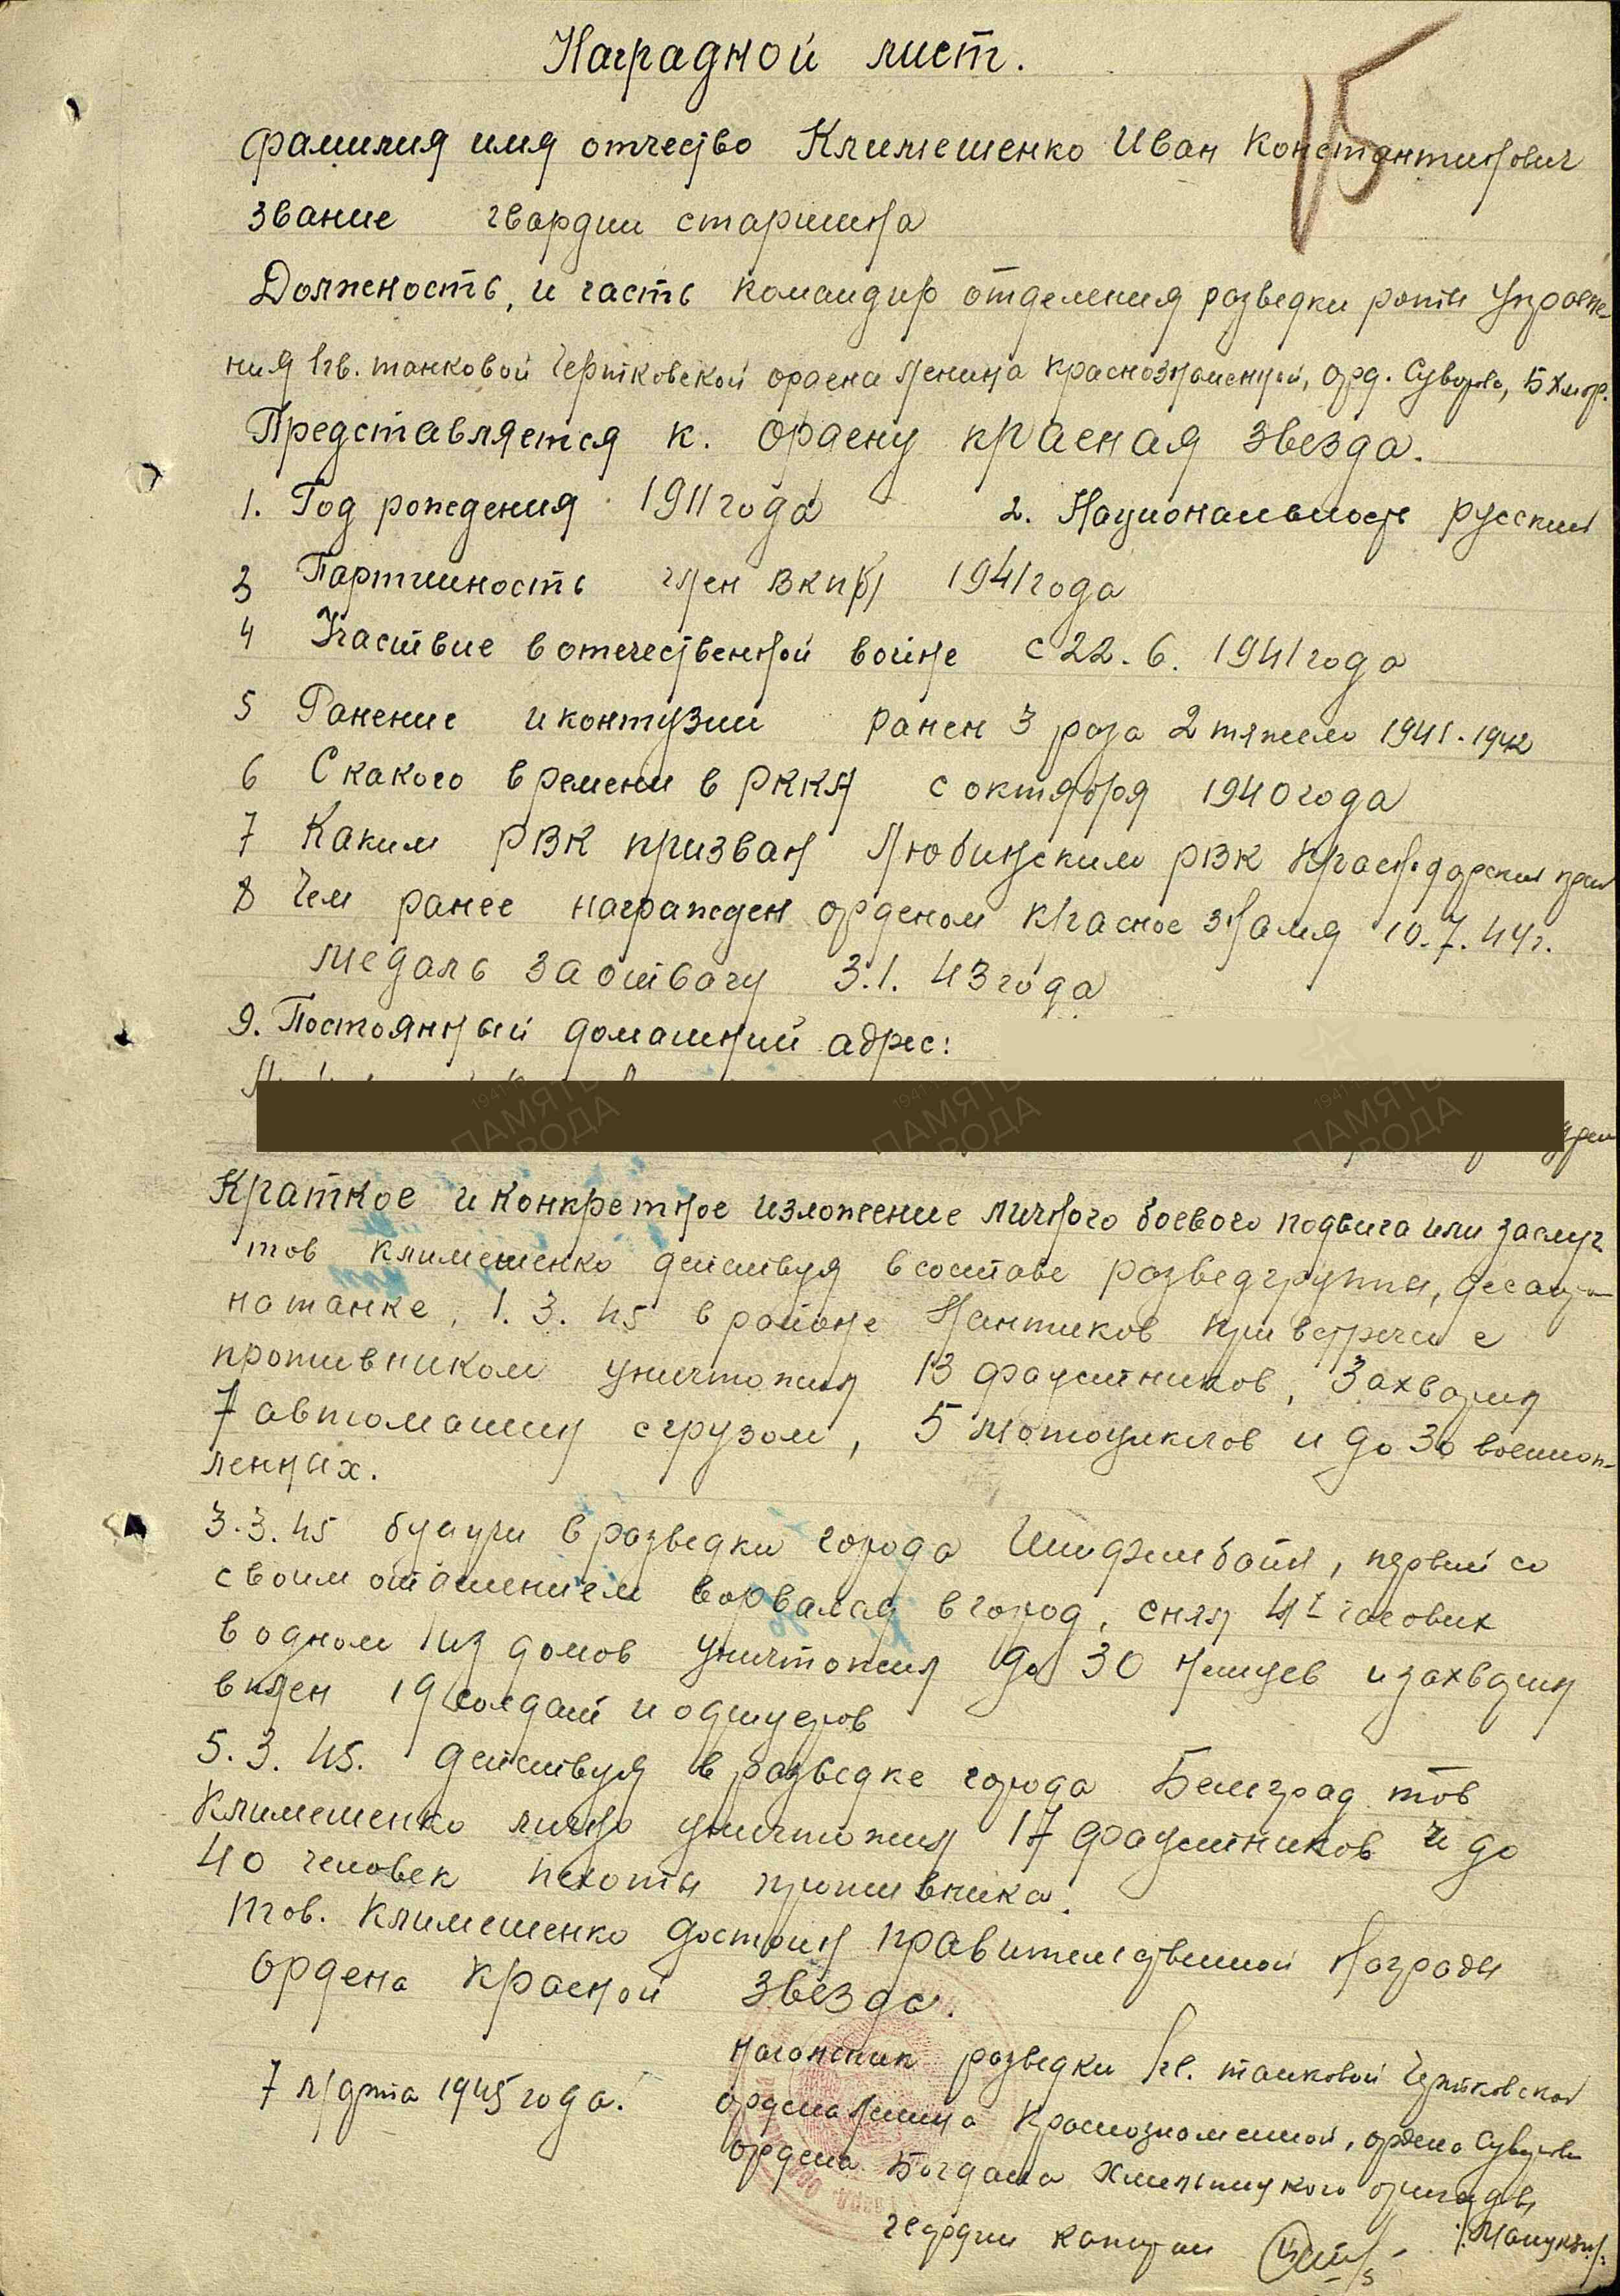 15
Наградной лист.
Фамилия имя отчество Климешенко Иван Константинович
Звание гвардии старшина
Должность, и часть командир отделения разведки роты управле-
ния 1 гв. танковой Чертковской ордена Ленина Краснознаменной, орд. Суворова, Б Хмельн.
Представляется к. ордену красная звезда.
1. Год рождения 1911 года 2. Национальность русский
3 Партийность член ВКП(б) 1941 года
4 Участвие в отечественной войне с 22.6. 1941 года
5 Ранение и контузии ранен 3 раза 2 тяжело 1941.1942
6 С какого времени в РККА с октября 1940 года
7 Каким РВК призван Любинским РВК Краснодарский край
8 Чем ранее награжден орденом красное знамя 10.7.44г.
медаль за отвагу 3.1. 43 года
9. Постоянный домашний адрес:
Краткое и конкретное изложение личного боевого подвига или заслуг.
тов Климешенко действуя в составе разведгруппы, десант
на танке, 1.3.45 в районе Нантиков при встречи с
противником уничтожил 13 фаустников, захватил
7 автомашин с грузом, 5 мотоциклов и до 30 военноп-
ленных.
3.3.45 будучи в разведки города первый со
своим отделением ворвался в город, снял 4х часовых
в одном из домов уничтожил до 30 немцев и захватил
в плен 19 солдат и офицеров
5.3.45. действуя в разведке города Бельград тов
Климешенко лично уничтожил 17 фаустников и до
40 человек пехоты противника.
тов. Климешенко достоин правительственной награды
ордена Красной звезда.
7 марта 1945 года.
Начальник разведки 1 гв. танковой Чертковской
ордена Ленина Краснознаменной, ордена Суворова
ордена Богдана Хмельницкого бригады
гвардии капитан
ПАМЯТЬ НАРОДА